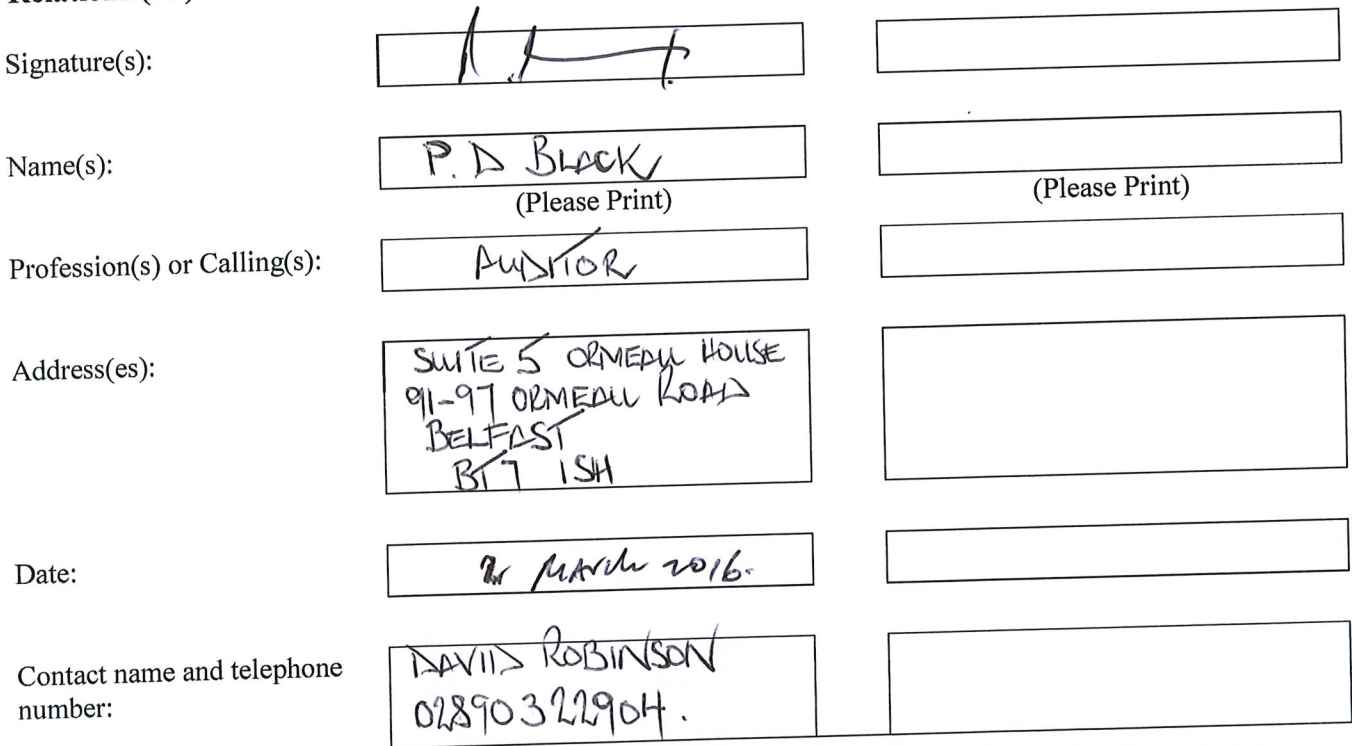 Signature(s):
Name(s):
P. D BLACK
(Please Print)
(Please Print)
Profession(s) or Calling(s):
AUDITOR
Address(es):
SUITE 5 ORMEAU HOUSE
91-97 ORMEAU ROAD
BELFAST
BT7 1SH
Date:
MARCH 2016.
Contact name and telephone
number:
DAVID ROBINSON
02890322904.